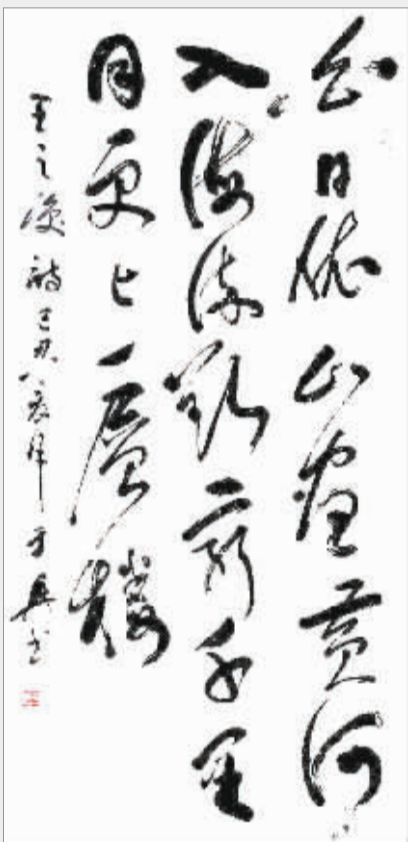 白日依山盡黄河
入海流欲窮千里
目更上一層樓
王之涣詩己丑